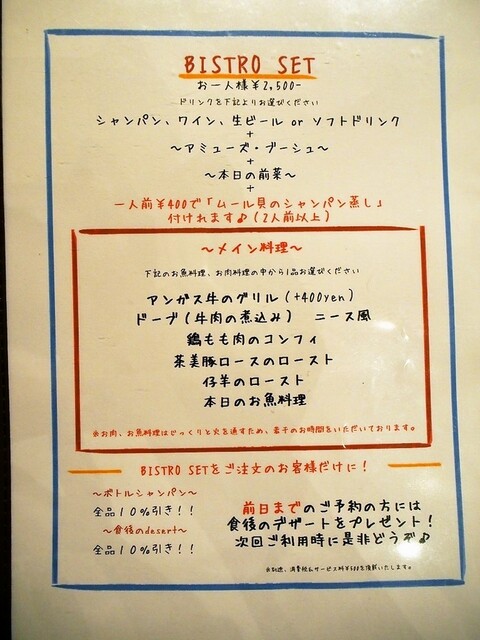 BISTRO SET
お一人様¥2,500-
ドリンクを下記よりお選びください
シャンパン、ワイン、生ビール or ソフトドリンク
+
～アミューズ・ブーシュ～
+
～本日の前菜～
+
一人前¥400で「ムール貝のシャンパン蒸し」
付けれます♪(2人前以上)
～メイン料理～
下記のお魚料理、お肉料理の中から1品お選びください
アンガス牛のグリル(+400yen)
ドーブ(牛肉の煮込み) ニース風
鶏もも肉のコンフィ
茶美豚ロースのロースト
仔羊のロースト
本日のお魚料理
※お肉、お魚料理はじっくりと火を通すため、若干のお時間をいただいております。
BISTRO SETをご注文のお客様だけに！
～ボトルシャンパン～
全品10%引き！！
～食後のdesert～
全品10%引き！！
前日までのご予約の方には
食後のデザートをプレゼント！
次回ご利用時に是非どうぞ♪
※別途、消費税&サービス料¥500を頂戴いたします。